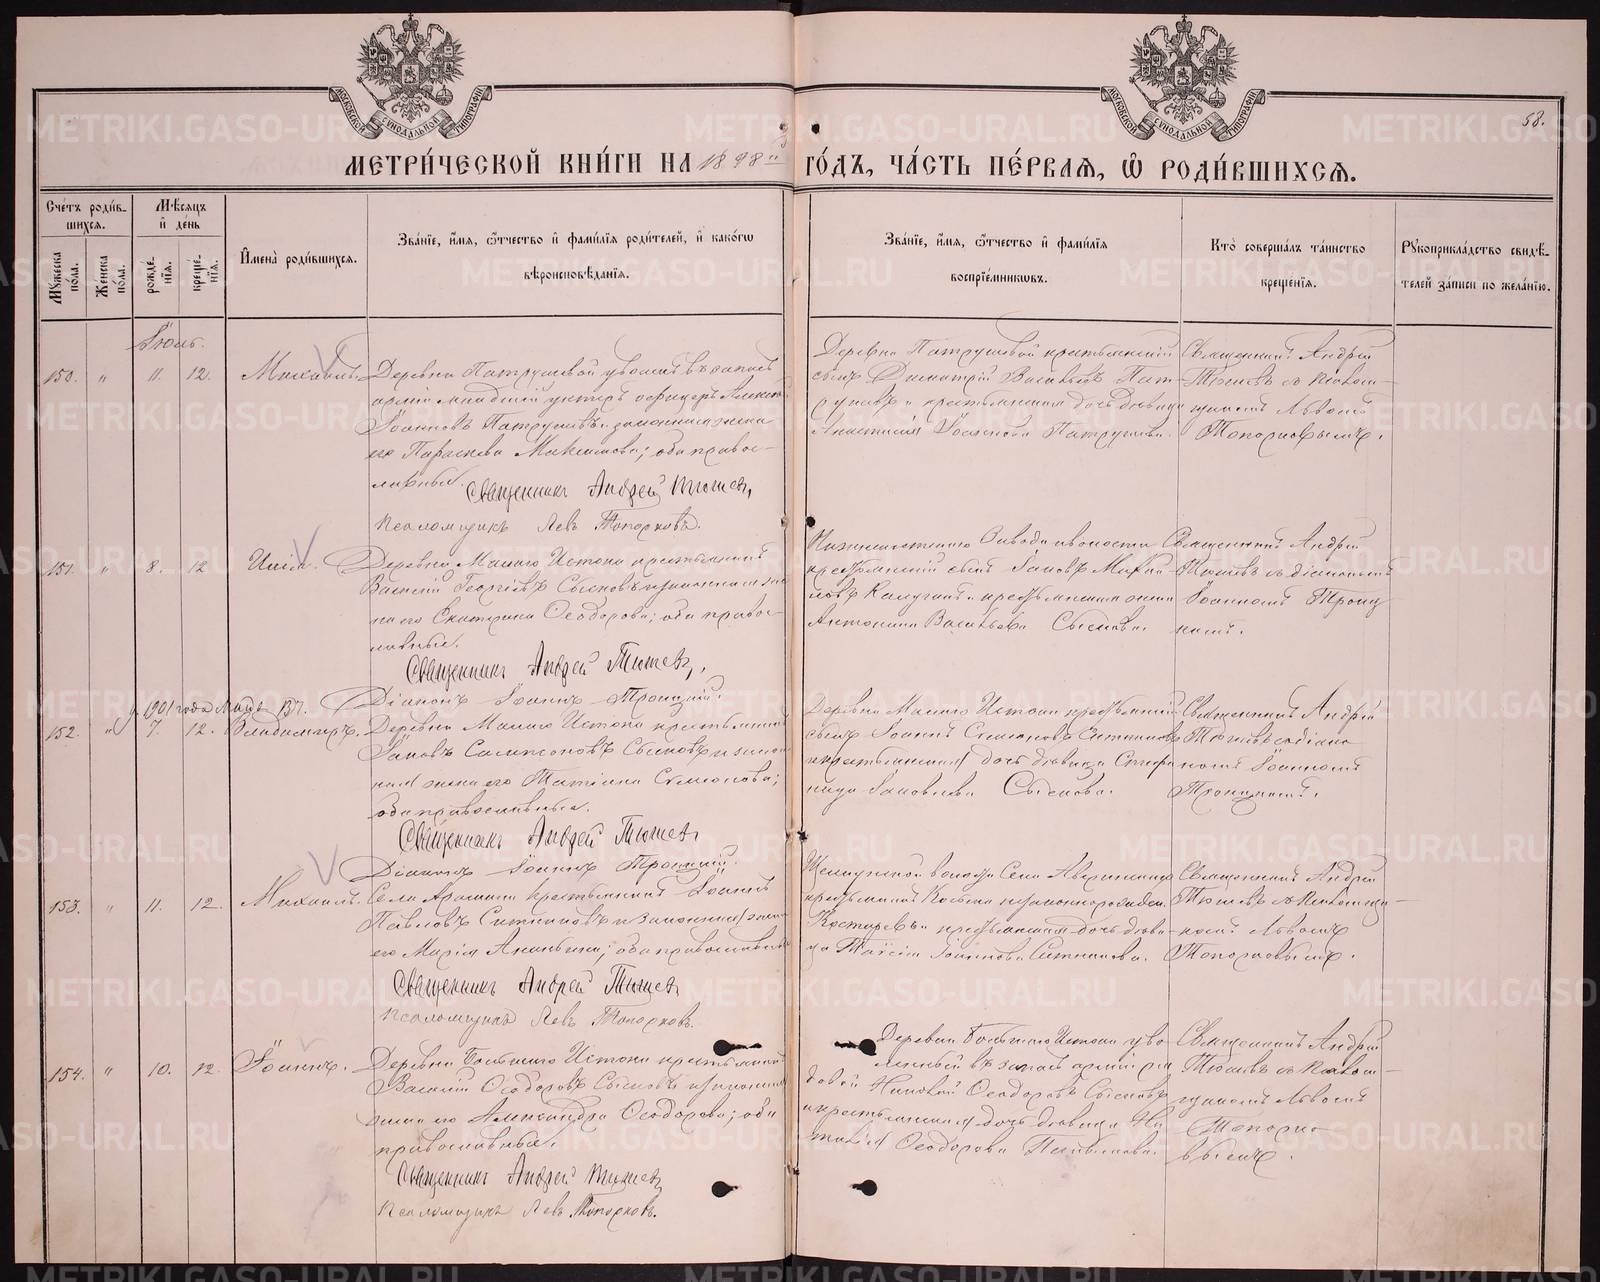 МОСКОВСКОЙ СѴНОДАЛЬНОЙ ТИПОГРАФІИ
МОСКОВСКОЙ СѴНОДАЛЬНОЙ ТИПОГРАФІИ
58.
МЕТРИ́ЧЕСКОЙ КНИ́ГИ НА 1898 ГО́ДЪ, ЧА́СТЬ ПЕ́РВАѦ, Ѡ҆ РОДИ́ВШИХСѦ.
Сче́тъ роди́в-
шихсѧ.
Мꙋжеска по́ла.
Же́нска по́ла.
Мѣ́сѧцъ
и҆ де́нь
рожде́-
нїѧ.
креще́-
нїѧ.
И҆мена̀ роди́вшихсѧ.
Зва́нїе, и҆́мѧ, ѻ҆́тчество и҆ фами́лїѧ роди́телей, и҆ како́гѡ
вѣроисповѣ́данїѧ.
Зва́нїе, и҆́мѧ, ѻ҆́тчество и҆ фами́лїѧ
воспрїе́мниковъ.
Кто̀ соверша́лъ та́инство
креще́нїѧ.
Рꙋкоприкла́дство свидѣ́-
телей за́писи по жела́нїю.
Іюль.
150. " 11. 12. Михаилъ. Деревни Патрушевой уволен. въ запасъ
арміи младшій унтеръ офицеръ
Іоанновъ Патрушевъ и законная жена
его Параскева Максимова; оба право-
славные.
Священникъ Андрей Тюшевъ,
Псаломщикъ Левъ Топорковъ.
Деревни Патрушевой крестьянскій
сынъ Димитрій Васильевъ Пат-
рушевъ и крестьянская дочь девица
Анастасія Іоаннова Патрушева.
Священникъ Андрей
Тюшевъ съ псалом-
щикомъ Львомъ
Топорковымъ.
151. " 8. 12. Деревни Малаго Истока крестьянинъ
Василій Георгіевъ Сысковъ и законная же-
на его Екатерина Ѳеодорова; оба право-
славные.
Священникъ Андрей Тюшевъ,
Діаконъ Іоаннъ Троицкій.
крестьянскій сынъ Іаковъ Михай-
ловъ и крестьянская жена
Антонина Васильева
Священникъ Андрей
Тюшевъ съ діакономъ
Іоанномъ Троиц-
кимъ.
1901 года
152. " 7. 12. Владимиръ. Деревни Малаго Истока крестьянинъ
Іаковъ Сампсоновъ и закон-
ная жена его Татіана Симеонова;
оба православные.
Священникъ Андрей Тюшевъ
Діаконъ Іоаннъ Троицкій.
Деревни Малаго Истока крестьянскій
сынъ Іоаннъ Симеоновъ Ситниковъ
и крестьянская дочь девица Стефа-
нида Іаковлева
Священникъ Андрей
Тюшевъ съ діако-
номъ Іоанномъ
Троицкимъ.
153. " 11. 12. Михаилъ. Села Арамили крестьянинъ Іоаннъ
Павловъ Ситниковъ и законная жена
его Марія Ананьина; оба православные
Священникъ Андрей Тюшевъ
Псаломщикъ Левъ Топорковъ.
волости Села
крестьянинъ Косьма незаконнорожден.
Костаревъ и крестьянская дочь деви-
ца Таисія Іоаннова Ситникова.
Священникъ Андрей
Тюшевъ съ псаломщи-
комъ Львомъ
Топорковымъ.
154. " 10. 12. Іоаннъ. Деревни Большаго Истока крестьянинъ
Василій Ѳеодоровъ и законная
жена его Александра Ѳеодорова; оба
православные.
Священникъ Андрей Тюшевъ
Псаломщикъ Левъ Топорковъ.
Деревни Большаго Истока уво-
ленный въ запасъ арміи ря-
довой Николай Ѳеодоровъ
и крестьянская дочь девица На-
талія Ѳеодорова
Священникъ Андрей
Тюшевъ съ псалом-
щикомъ Львомъ
Топорко-
вымъ.
METRIKI.GASO-URAL.RU